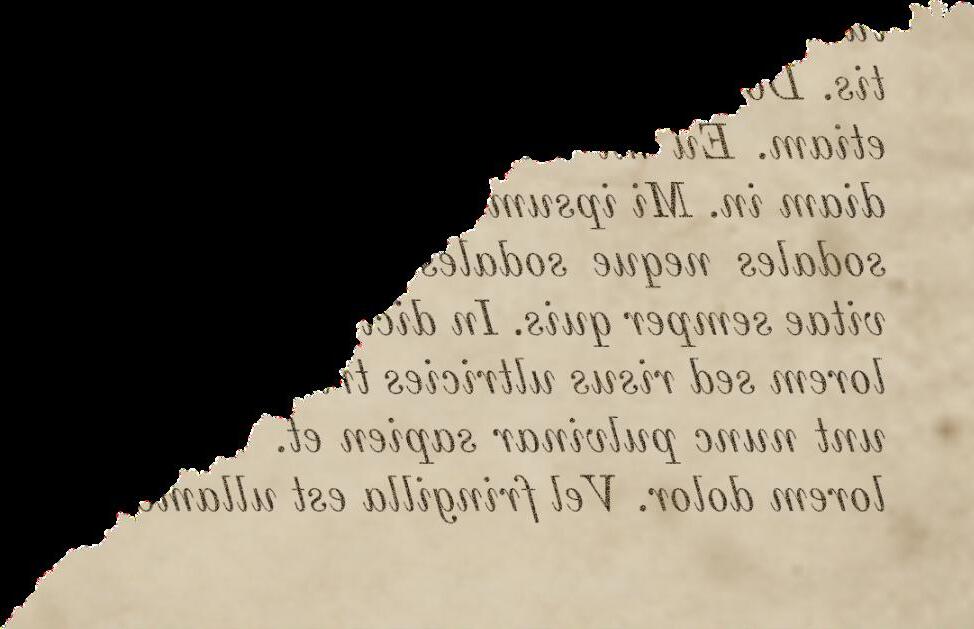 tis.
etiam. Eu
diam in. Mi ipsum
sodales neque sodales
vitae semper quis. In
lorem sed risus ultricies
unt nunc pulvinar sapien et.
lorem dolor. Vel fringilla est